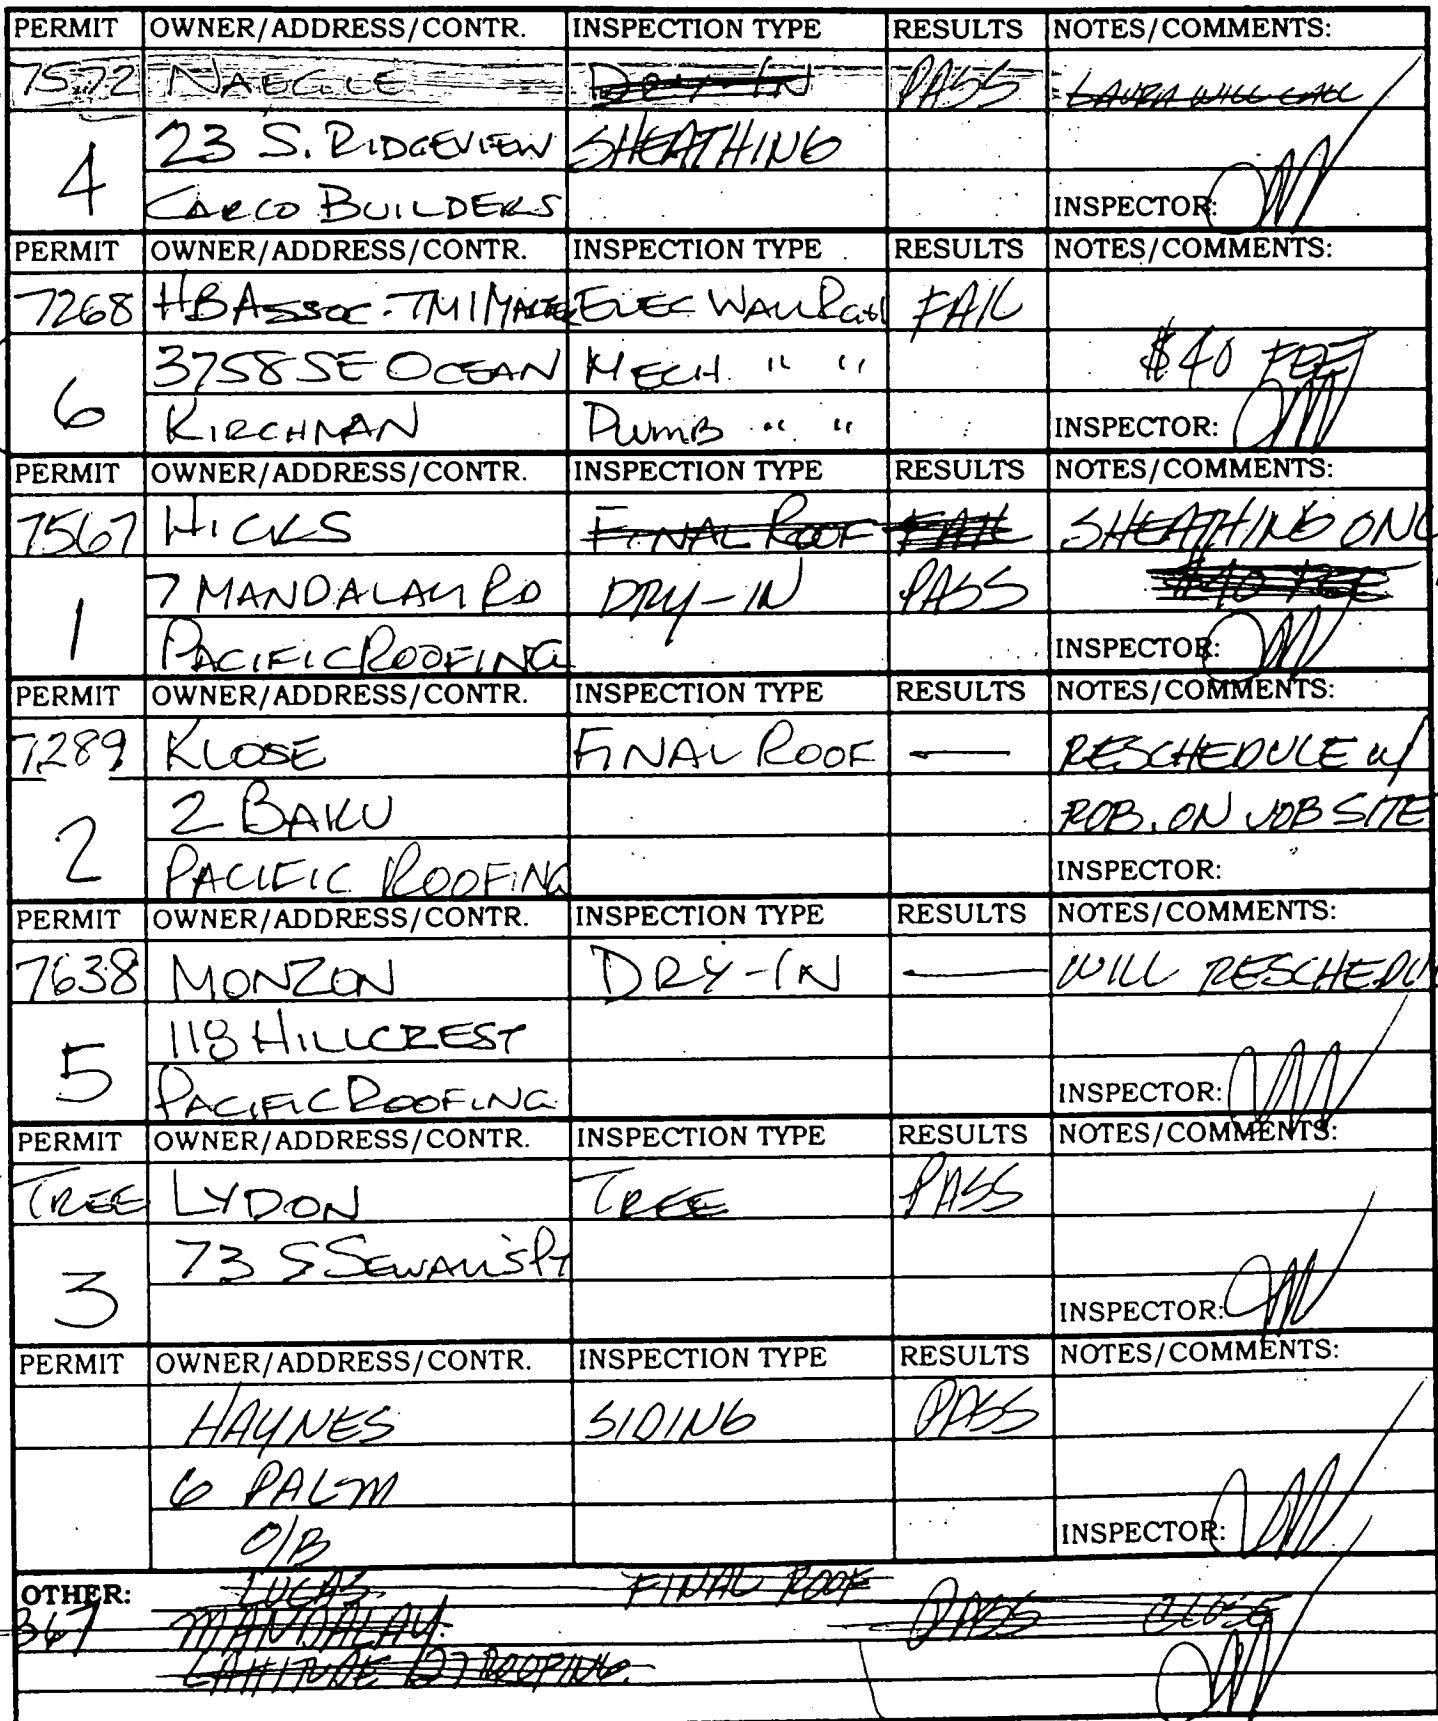 PERMIT OWNER/ADDRESS/CONTR. INSPECTION TYPE RESULTS NOTES/COMMENTS:
7572 NAEGELE DRY-IN PASS LAURA WILL CALL
4 23 S. RIDGEVIEW SHEATHING
CARCO BUILDERS INSPECTOR:
PERMIT OWNER/ADDRESS/CONTR. INSPECTION TYPE RESULTS NOTES/COMMENTS:
7268 HB ASSOC - TM1 ELEC WALL FAIL
6 3758 SE OCEAN MECH. " " $40 FEE
KIRCHMAN PLUMB " " INSPECTOR:
PERMIT OWNER/ADDRESS/CONTR. INSPECTION TYPE RESULTS NOTES/COMMENTS:
7567 HICKS FINAL ROOF FAIL SHEATHING ONL
1 7 MANDALAY RD DRY-IN PASS $40 FEE
PACIFIC ROOFING INSPECTOR:
PERMIT OWNER/ADDRESS/CONTR. INSPECTION TYPE RESULTS NOTES/COMMENTS:
7289 KLOSE FINAL ROOF — RESCHEDULE w/
2 2 BAKU ROB. ON JOB SITE
PACIFIC ROOFING INSPECTOR:
PERMIT OWNER/ADDRESS/CONTR. INSPECTION TYPE RESULTS NOTES/COMMENTS:
7638 MONZON DRY-IN — WILL RESCHEDU
5 118 HILLCREST
PACIFIC ROOFING INSPECTOR:
PERMIT OWNER/ADDRESS/CONTR. INSPECTION TYPE RESULTS NOTES/COMMENTS:
TREE LYDON TREE PASS
3 73 S SEWALL'S PT
INSPECTOR:
PERMIT OWNER/ADDRESS/CONTR. INSPECTION TYPE RESULTS NOTES/COMMENTS:
HAYNES SIDING PASS
6 PALM
O/B INSPECTOR:
OTHER: LUCAS FINAL ROOF
367 MANDALAY PASS CLOSE
LATITUDE 27 ROOFING.